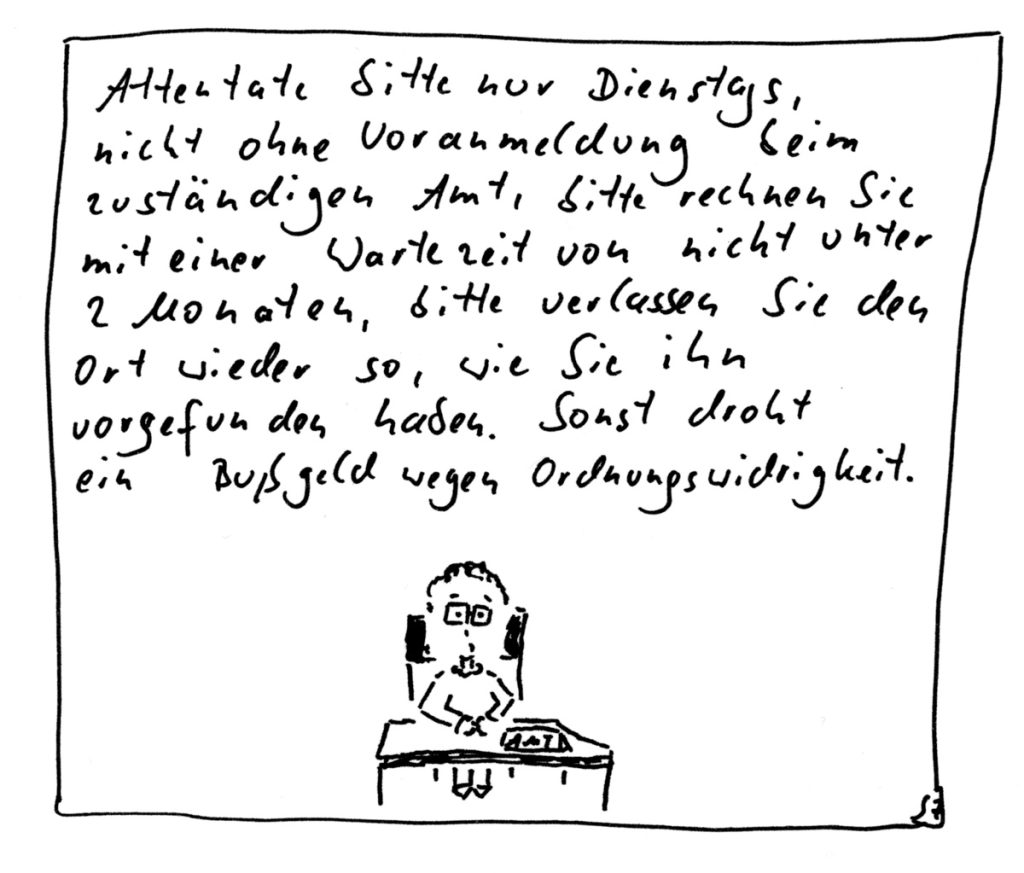 Attentate bitte nur Dienstags,
nicht ohne Voranmeldung beim
zuständigen Amt, bitte rechnen Sie
mit einer Wartezeit von nicht unter
2 Monaten, bitte verlassen Sie den
Ort wieder so, wie Sie ihn
vorgefunden haben. Sonst droht
ein Bußgeld wegen Ordnungswidrigkeit.
AMT